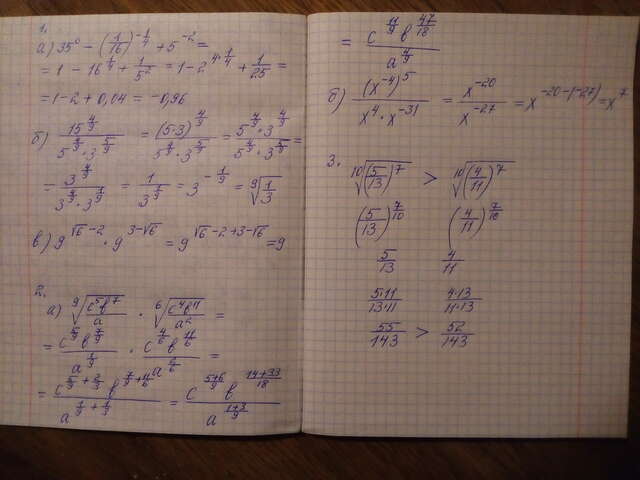 1.
а) 35⁰ − (1/16)^(−1/4) + 5^(−2) =
= 1 − 16^(1/4) + 1/5² = 1 − 2^(4·1/4) + 1/25 =
= 1 − 2 + 0,04 = −0,96
б) 15^(4/9) / (5^(4/9) · 3^(5/9)) = (5·3)^(4/9) / (5^(4/9) · 3^(5/9)) = 5^(4/9) · 3^(4/9) / (5^(4/9) · 3^(5/9)) =
= 3^(4/9) / (3^(4/9) · 3^(1/9)) = 1 / 3^(1/9) = 3^(−1/9) = ⁹√(1/3)
в) 9^(√6−2) · 9^(3−√6) = 9^(√6−2+3−√6) = 9
2.
а) ⁹√(c⁵b⁷/a) · ⁶√(c⁴b¹¹/a²) =
= c^(5/9) b^(7/9) / a^(1/9) · c^(4/6) b^(11/6) / a^(2/6) =
= c^(5/9 + 2/3) b^(7/9 + 11/6) / a^(1/9 + 1/3) = c^((5+6)/9) b^((14+33)/18) / a^((1+3)/9)
= c^(11/9) b^(47/18) / a^(4/9)
б) (x^(−4))^5 / (x^4 · x^(−31)) = x^(−20) / x^(−27) = x^(−20−(−27)) = x^7
3. ¹⁰√((5/13)^7) > ¹⁰√((4/11)^7)
(5/13)^(7/10) (4/11)^(7/10)
5/13 4/11
5·11/13·11 4·13/11·13
55/143 > 52/143